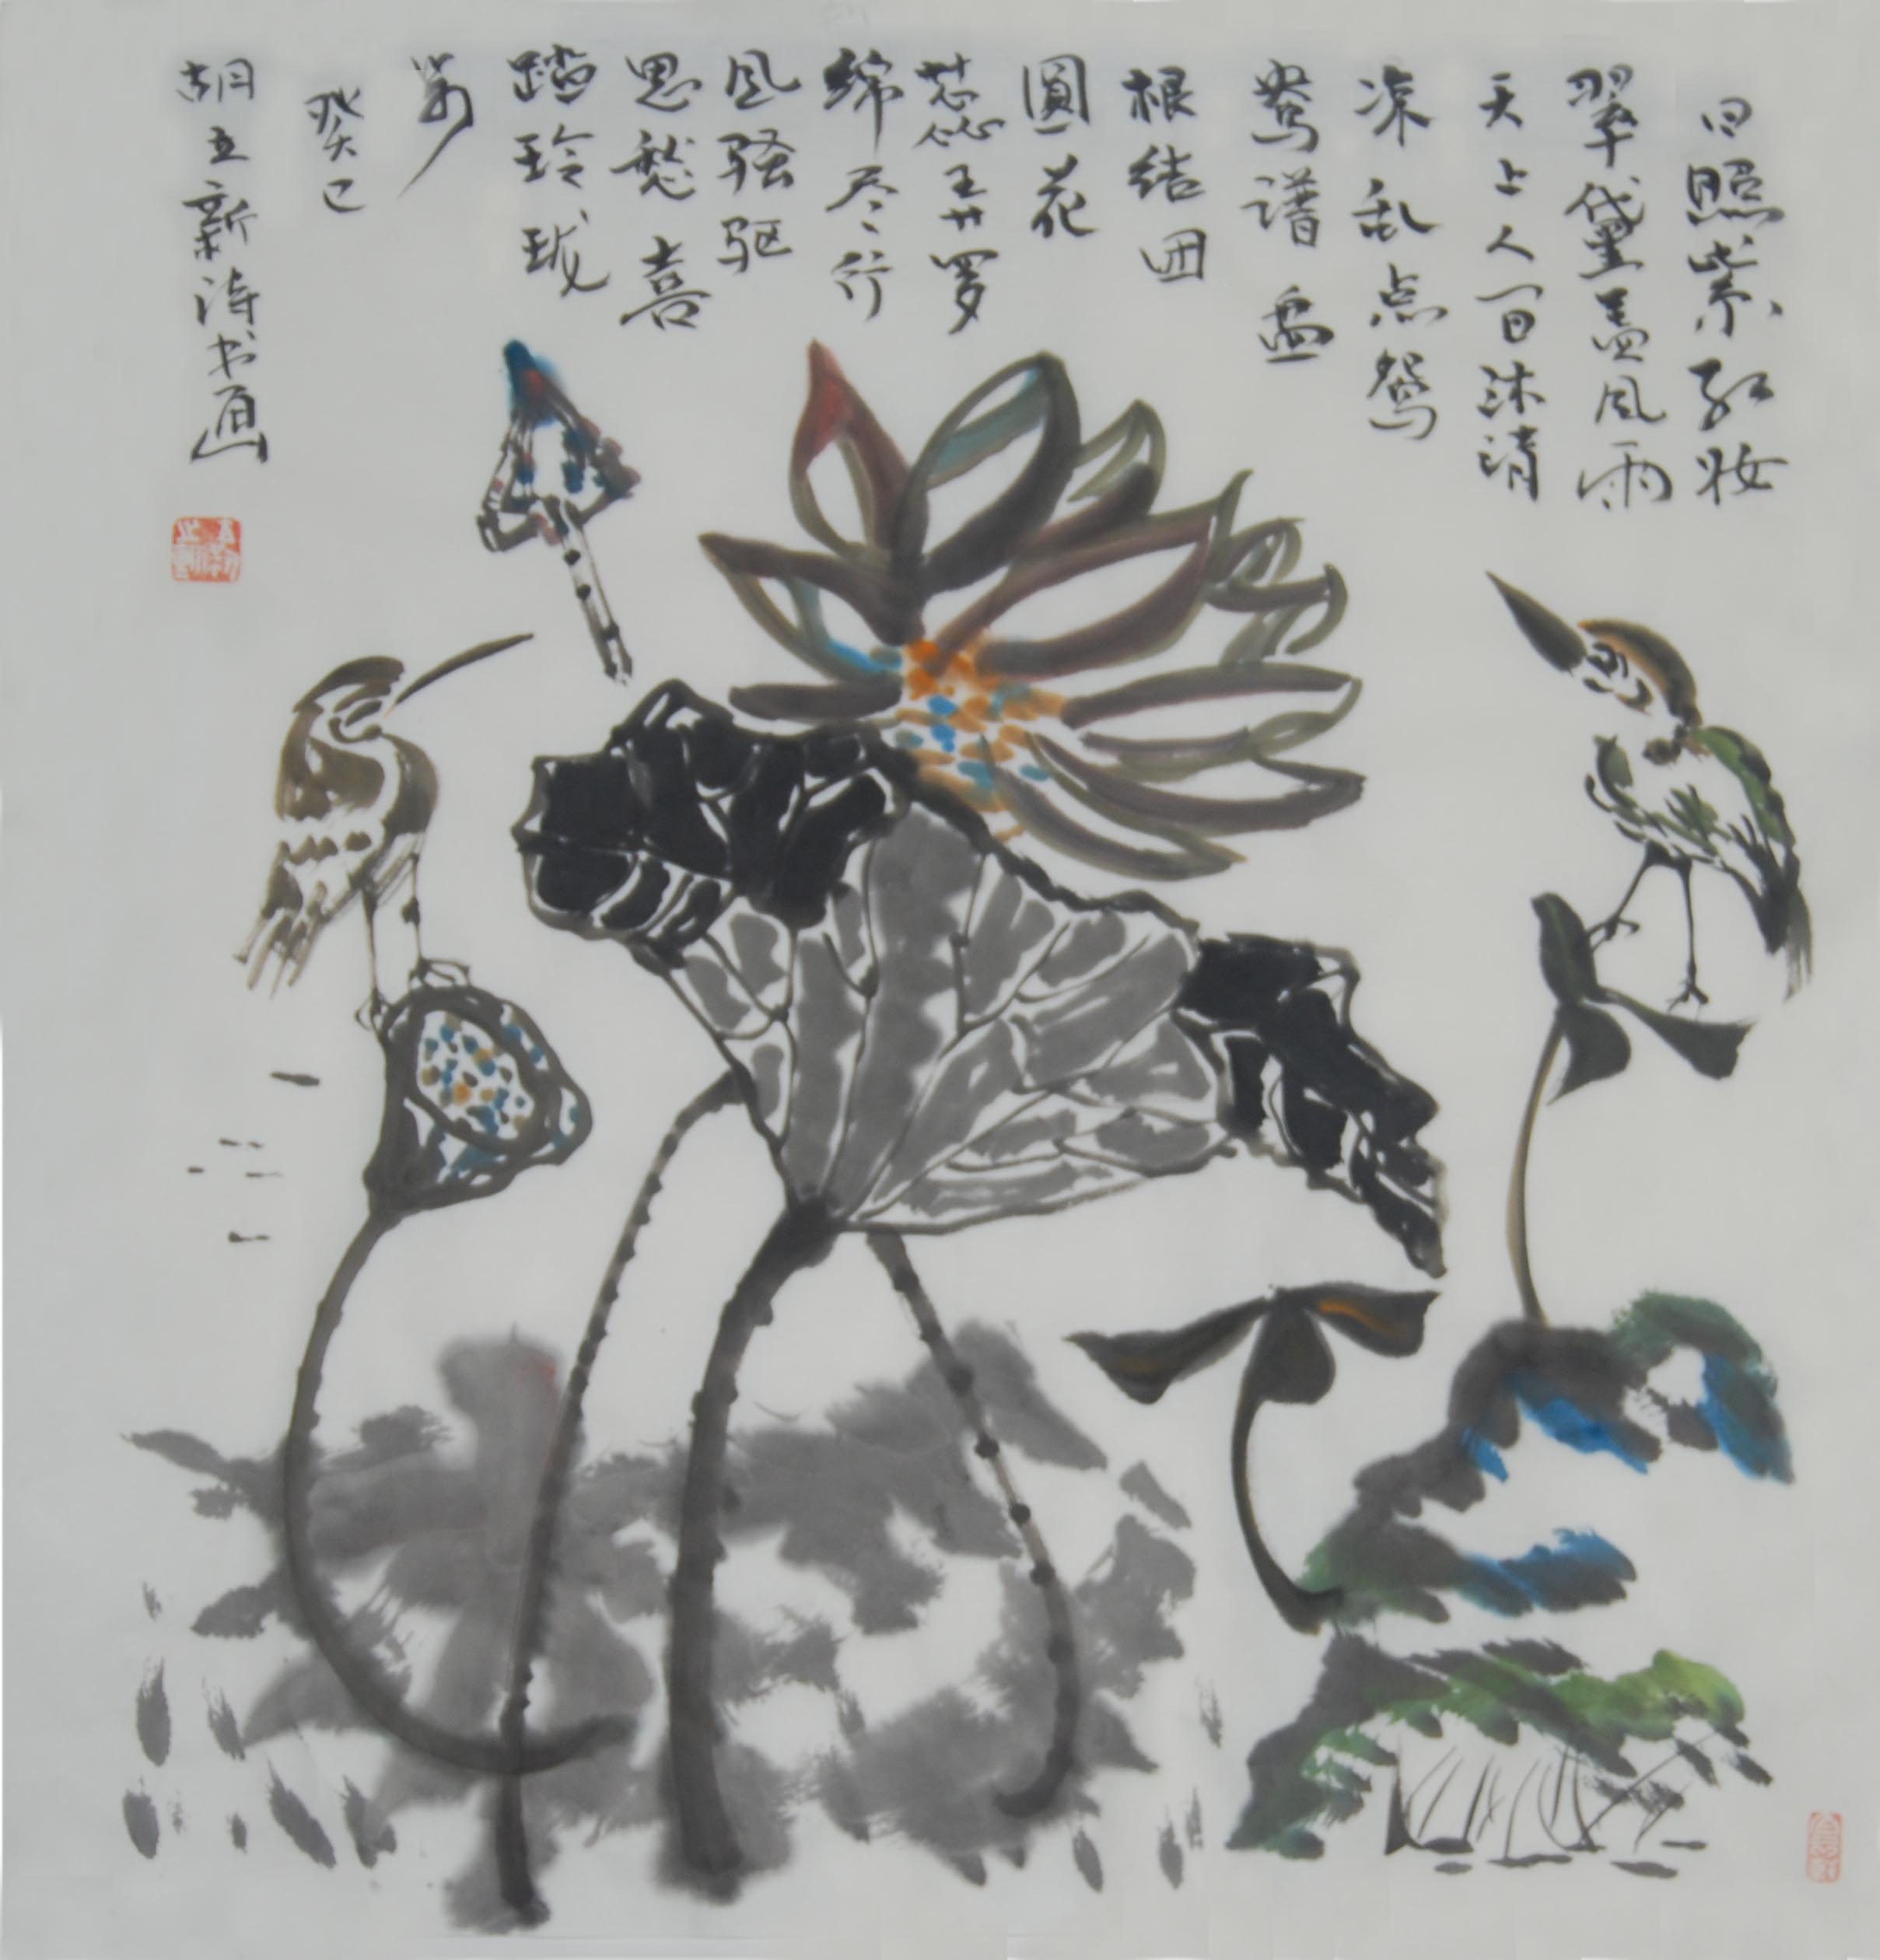 日照紫红妆
翠黛盖风雨
天上人一日沐清
凉乱点鸳
鸯谱盘
根结团
圆花
蕊
绵尽行
风骚驱
思愁喜
踏玲珑
癸巳
胡立新诗书画